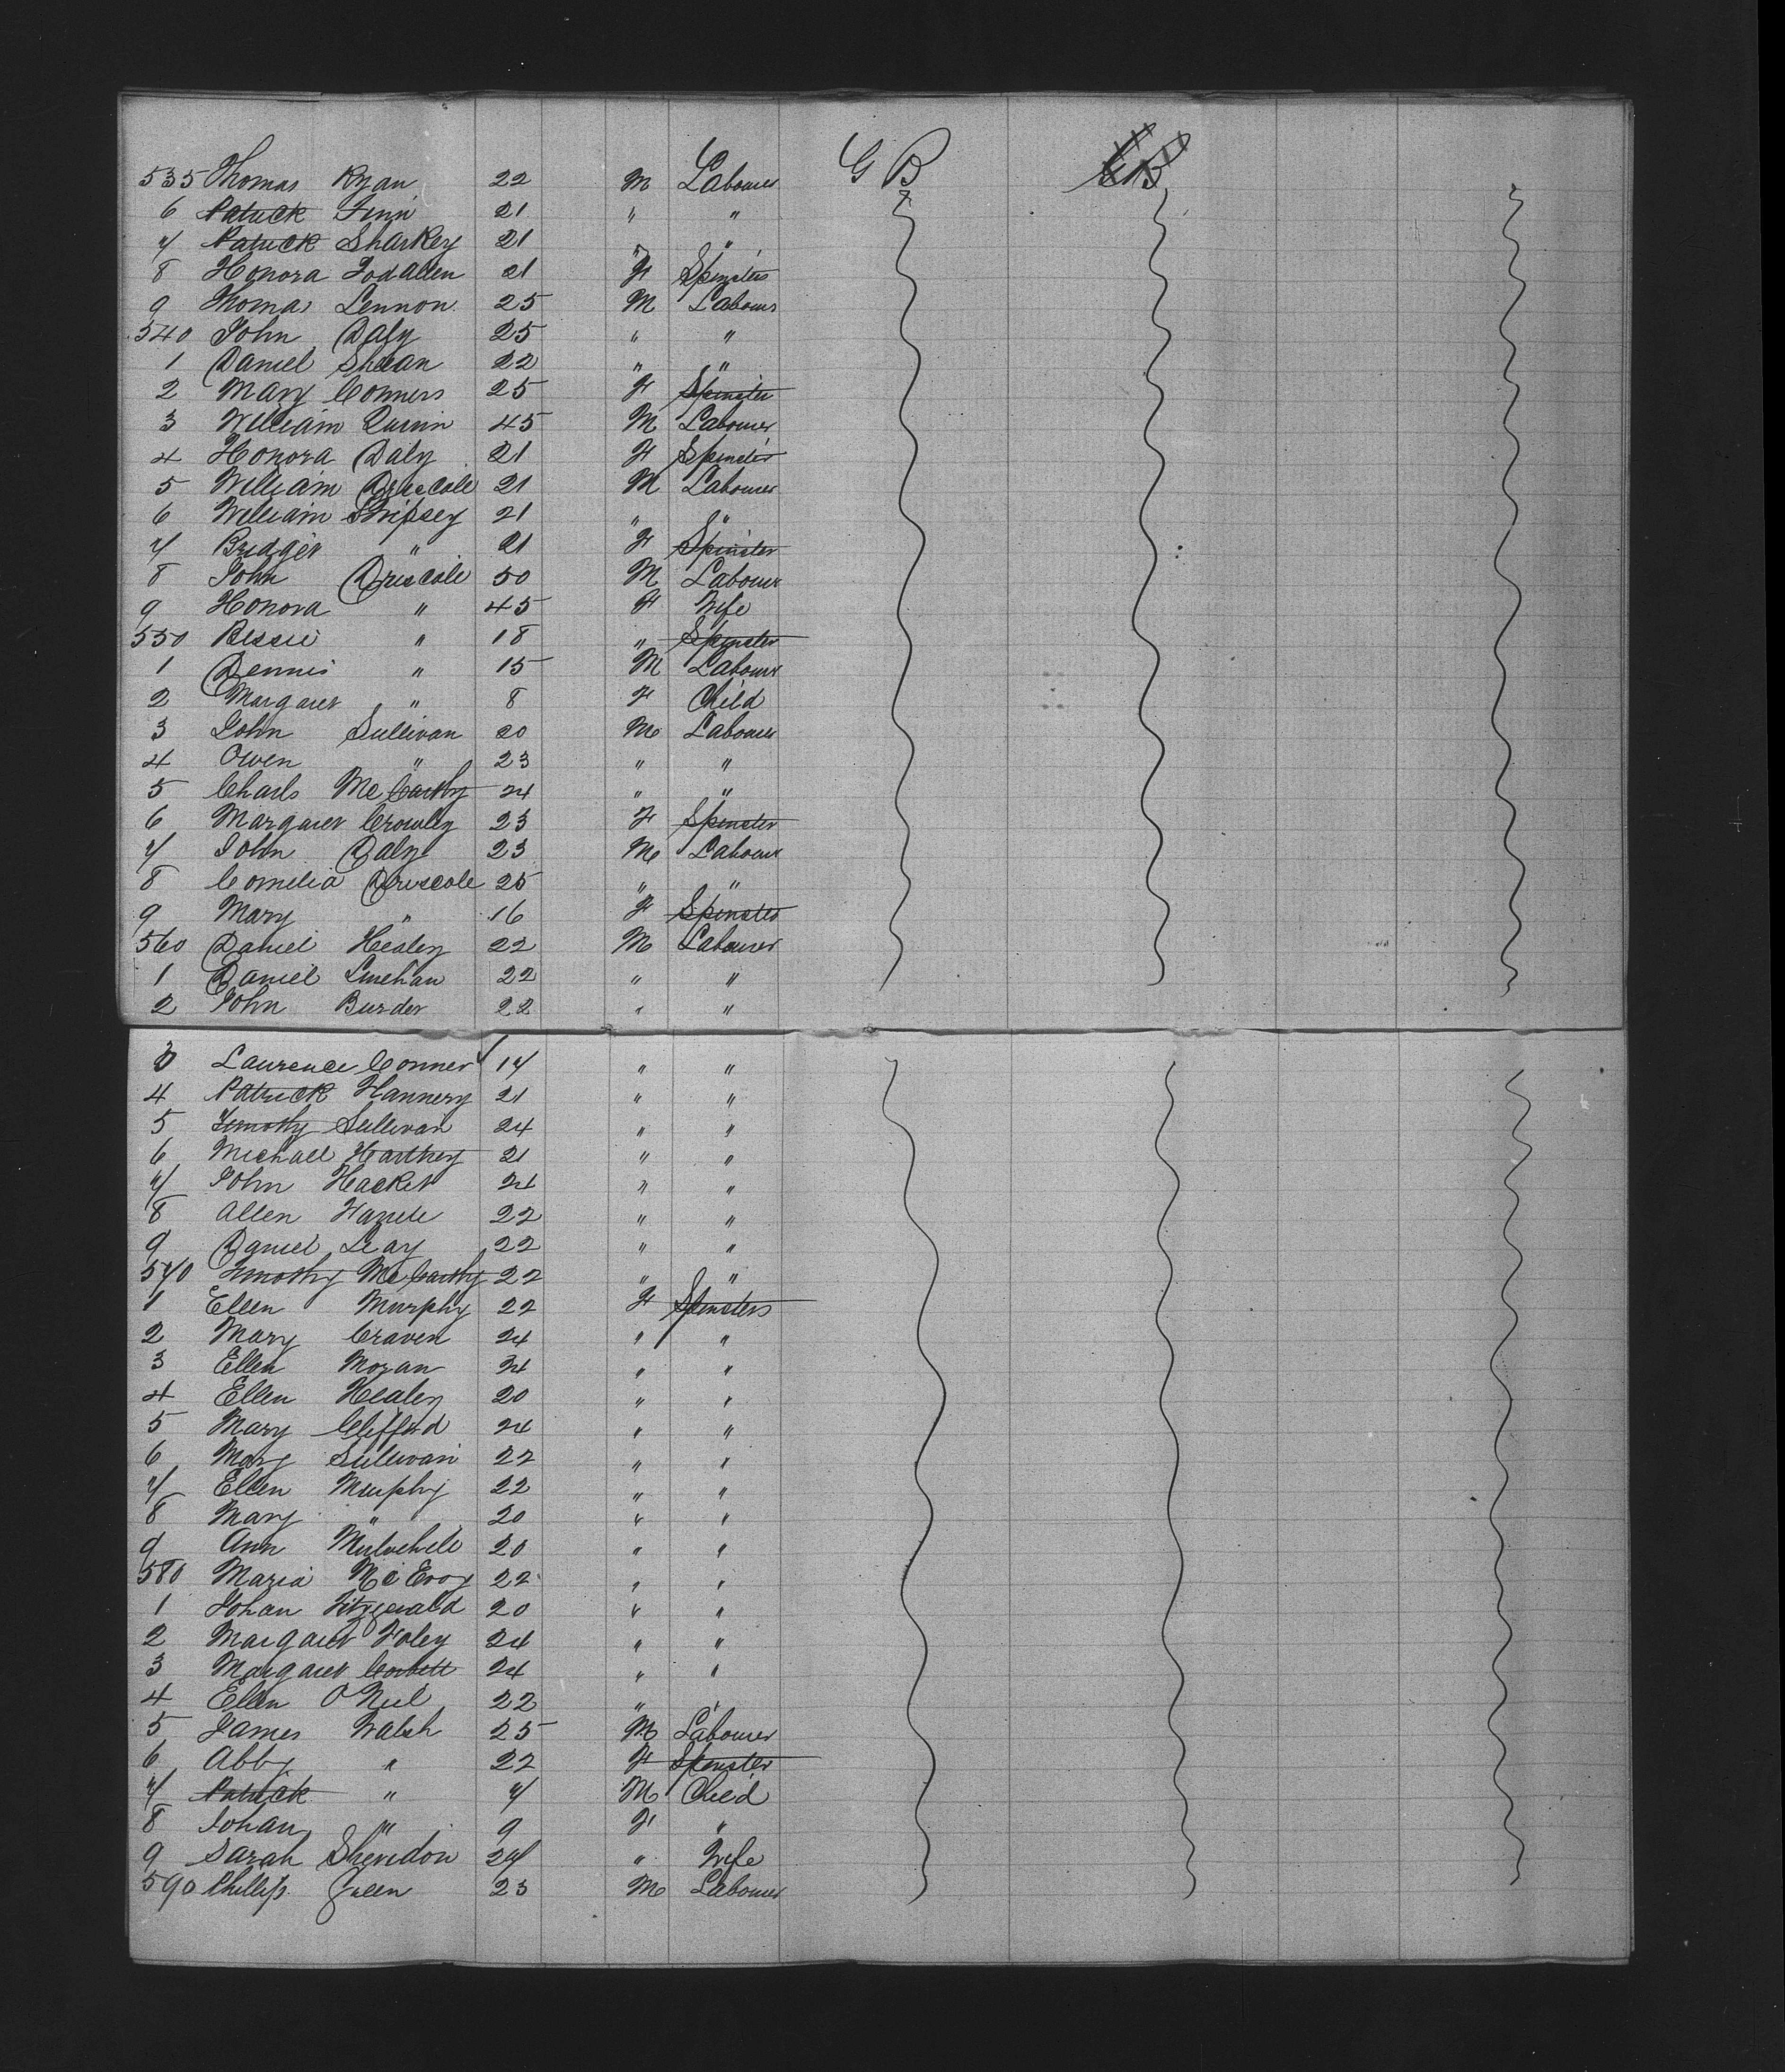 535 Thomas Ryan 22 M Labourer G B GB
6 Patrick Finn 21 " "
7 Patrick Sharkey 21 " "
8 Honora 21 F Spinster
9 Thomas Lennon 25 M Labourer
540 John Daly 25 " "
1 Daniel Sheean 22 " "
2 Mary Conners 25 F Spinster
3 William Quinn 45 M Labourer
4 Honora Daly 21 F Spinster
5 William Driscole 21 M Labourer
6 William Shipsey 21 " "
7 Bridget " 21 F Spinster
8 John Driscole 50 M Labourer
9 Honora " 45 F Wife
550 Bessie " 18 " Spinster
1 Dennis " 15 M Labourer
2 Margaret " 8 F Child
3 John Sullivan 20 M Labourer
4 Owen " 23 " "
5 Charls McCarthy 24 " "
6 Margaret Crowley 23 F Spinster
7 John Daly 23 M Labourer
8 Cornelia Driscole 25 " "
9 Mary " 16 F Spinster
560 Daniel Healey 22 M Labourer
1 Daniel Linehan 22 " "
2 John Burder 22 " "
3 Laurence Conner 17 " "
4 Patrick Hannery 21 " "
5 Timothy Sullivan 24 " "
6 Michael Harthey 21 " "
7 John Hacket 24 " "
8 Allen 22 " "
9 Daniel Leay 22 " "
570 Timothy McCarthy 22 " "
1 Ellen Murphy 22 F Spinsters
2 Mary Craven 24 " "
3 Ellen Moran 24 " "
4 Ellen Healey 20 " "
5 Mary Clifford 24 " "
6 Mary Sullivan 22 " "
7 Ellen Murphy 22 " "
8 Mary " 20 " "
9 Ann Mulvehill 20 " "
580 Maria McEvoy 22 " "
1 Johan Fitzgerald 20 " "
2 Margaret Foley 24 " "
3 Margaret Corbett 24 " "
4 Ellen O Neil 22 " "
5 James Walsh 25 M Labourer
6 Abby " 22 F Spinster
7 Patrick " 7 M Child
8 Johan " 9 F "
9 Sarah Sheridon 27 " Wife
590 Phillip Green 23 M Labourer